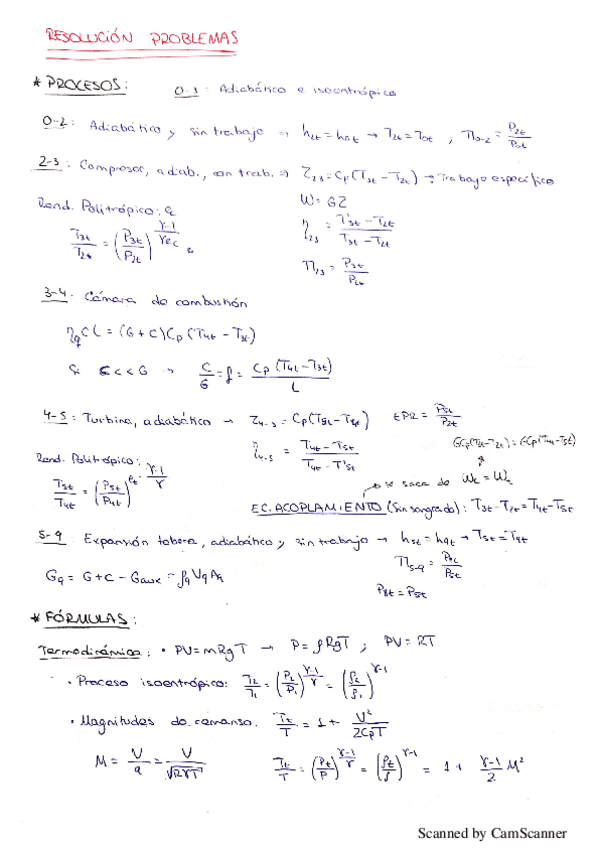 RESOLUCIÓN PROBLEMAS
* PROCESOS: 0-1: Adiabático e isoentrópico
0-2: Adiabático y sin trabajo ⇒ h₂ₜ = h₀ₜ → T₂ₜ = T₀ₜ ; Π₀₋₂ = P₂ₜ/P₀ₜ
2-3: Compresor, adiab., con trab. ⇒ Z₂₃ = Cp(T₃ₜ − T₂ₜ) : Trabajo específico
W = GZ
Rend. Politrópico: e
T₃ₜ/T₂ₜ = (P₃ₜ/P₂ₜ)^((γ-1)/(γec))
η₂₃ = (T'₃ₜ − T₂ₜ)/(T₃ₜ − T₂ₜ)
Π₂₃ = P₃ₜ/P₂ₜ
3-4: Cámara de combustión
ηq C L = (G + C) Cp (T₄ₜ − T₃ₜ)
Si C << G → C/G = f = Cp (T₄ₜ − T₃ₜ)/L
4-5: Turbina, adiabático → Z₄₋₅ = Cp(T₅ₜ − T₄ₜ) EPR = P₅ₜ/P₂ₜ
GCp(T₃ₜ−T₂ₜ) = GCp(T₄ₜ−T₅ₜ)
η₄₋₅ = (T₄ₜ − T₅ₜ)/(T₄ₜ − T'₅ₜ)
Rend. Politrópico:
T₅ₜ/T₄ₜ = (P₅ₜ/P₄ₜ)^(eₜ·(γ-1)/γ)
se saca de Wc = Wt
EC. ACOPLAMIENTO (Sin sangrado): T₃ₜ − T₂ₜ = T₄ₜ − T₅ₜ
5-9: Expansión tobera, adiabático y sin trabajo → h₅ₜ = h₉ₜ → T₅ₜ = T₉ₜ
G₉ = G + C − Gaux = ρ₉V₉A₉
Π₅₋₉ = P₉ₜ/P₅ₜ
P₈ₜ = P₅ₜ
* FÓRMULAS:
Termodinámica: • PV = mRgT → P = ρRgT ; PV = RT
• Proceso isoentrópico: T₂/T₁ = (P₂/P₁)^((γ-1)/γ) = (ρ₂/ρ₁)^(γ-1)
• Magnitudes de remanso. Tₜ/T = 1 + V²/(2CpT)
M = V/a = V/√(RγT) Tₜ/T = (Pₜ/P)^((γ-1)/γ) = (ρₜ/ρ)^(γ-1) = 1 + (γ-1)/2 M²
Scanned by CamScanner